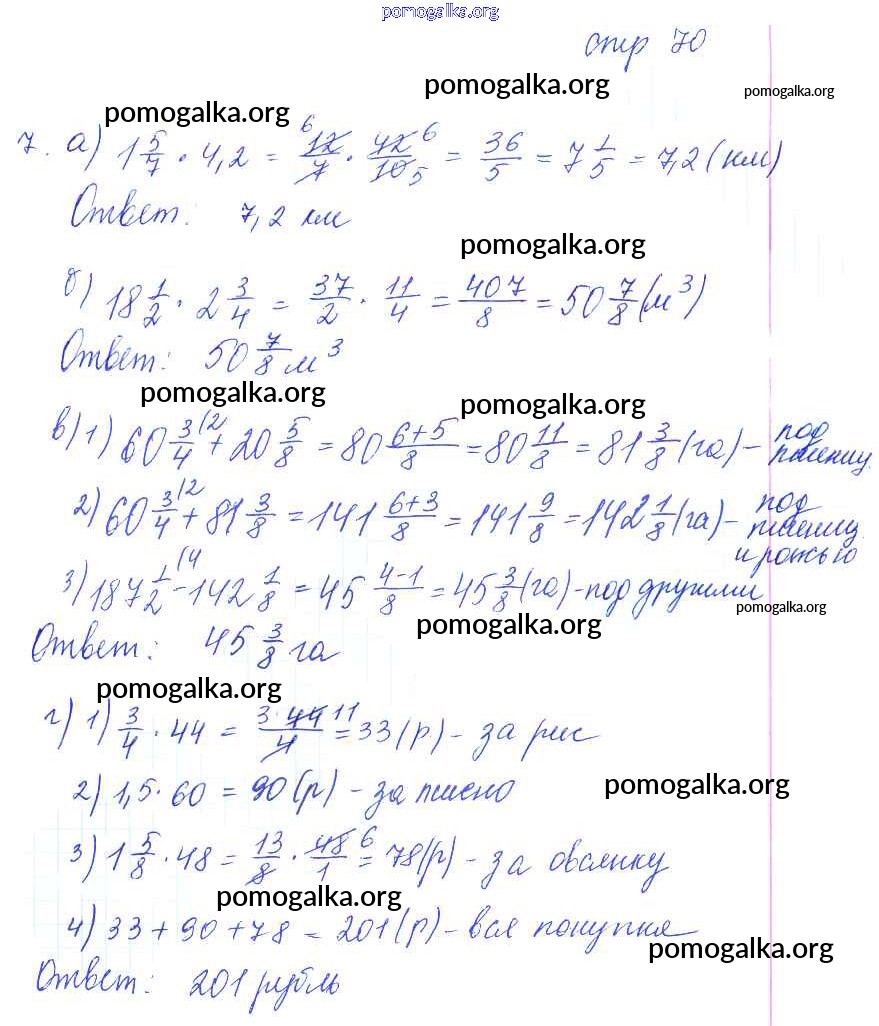 pomogalka.org
стр 70
pomogalka.org
pomogalka.org
pomogalka.org
7. а) 1 5/7 · 4,2 = 12/7 · 42/10 = 36/5 = 7 1/5 = 7,2 (км)
6 6 5
Ответ: 7,2 км
pomogalka.org
б) 18 1/2 · 2 3/4 = 37/2 · 11/4 = 407/8 = 50 7/8 (м³)
Ответ: 50 7/8 м³
pomogalka.org
pomogalka.org
в) 1) 60 3/4 (2 + 20 5/8 = 80 6+5/8 = 80 11/8 = 81 3/8 (га) – под пшениц.
2) 60 3/4 (2 + 81 3/8 = 141 6+3/8 = 141 9/8 = 142 1/8 (га) – под
пшениц.
и рожью
3) 187 1/2 (4 – 142 1/8 = 45 4-1/8 = 45 3/8 (га) – под другими
pomogalka.org
pomogalka.org
Ответ: 45 3/8 га
pomogalka.org
г) 1) 3/4 · 44 = 3·44/4 11 = 33 (р) – за рис
2) 1,5 · 60 = 90 (р) – за пшено
pomogalka.org
3) 1 5/8 · 48 = 13/8 · 48/1 6 = 78 (р) – за овсянку
pomogalka.org
4) 33 + 90 + 78 = 201 (р) – вся покупка
pomogalka.org
Ответ: 201 рубль